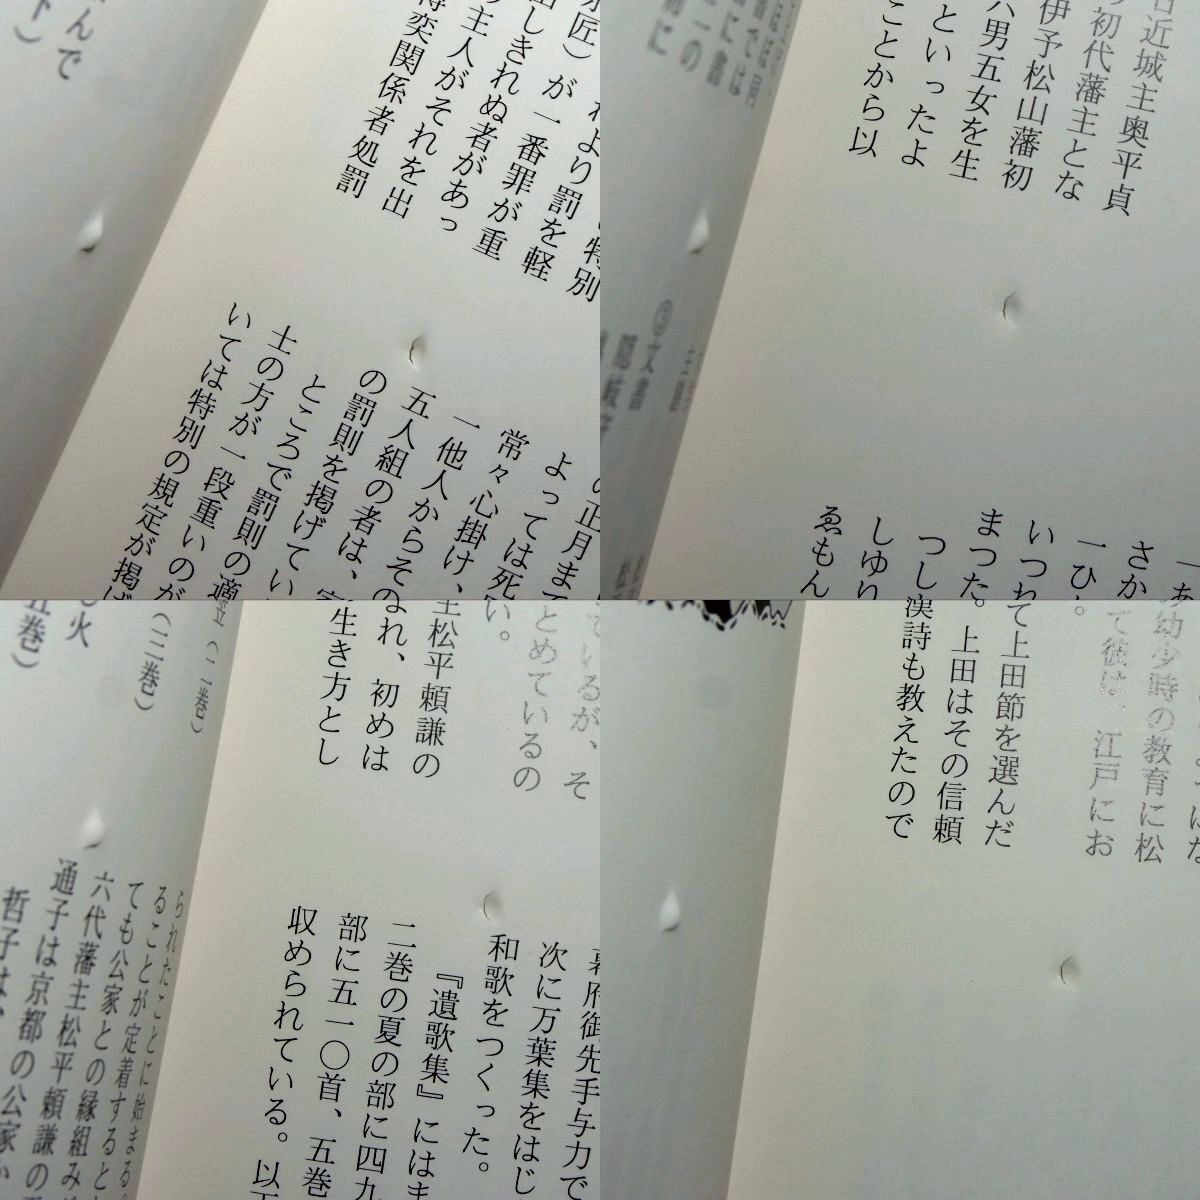 んで
ト）
特別
れより罰を軽
が一番罪が重
出しきれぬ者があっ
主人がそれを出
奕関係者処罰
の正月まで
よっては死
常々心掛け、
一 他人からその
五人組の者は、
の罰則を掲げてい
ところで罰則の適
士の方が一段重いのが
いては特別の規定が掲げ
近城主奥平貞
初代藩主とな
伊予松山藩初
六男五女を生
といったよ
ことから以
一あ
さか
一ひ
いつ
まつた。
つし
しゆり
ゑもん
火
五巻）
（三巻）
（二巻）
ているが、そ
とめているの
い。
主松平頼謙の
れ、初めは
生き方とし
幕府御先手与力で
次に万葉集をはじ
和歌をつくった。
『遺歌集』にはま
二巻の夏の部に四九
部に五一〇首、五巻
収められている。以下
られたことに始まる。
ることが定着すると
ても公家との縁組み
六代藩主松平頼謙の
通子は京都の公家
哲子は、
幼少時の教育に松
て彼は、江戸にお
て上田節を選んだ
上田はその信頼
漢詩も教えたので